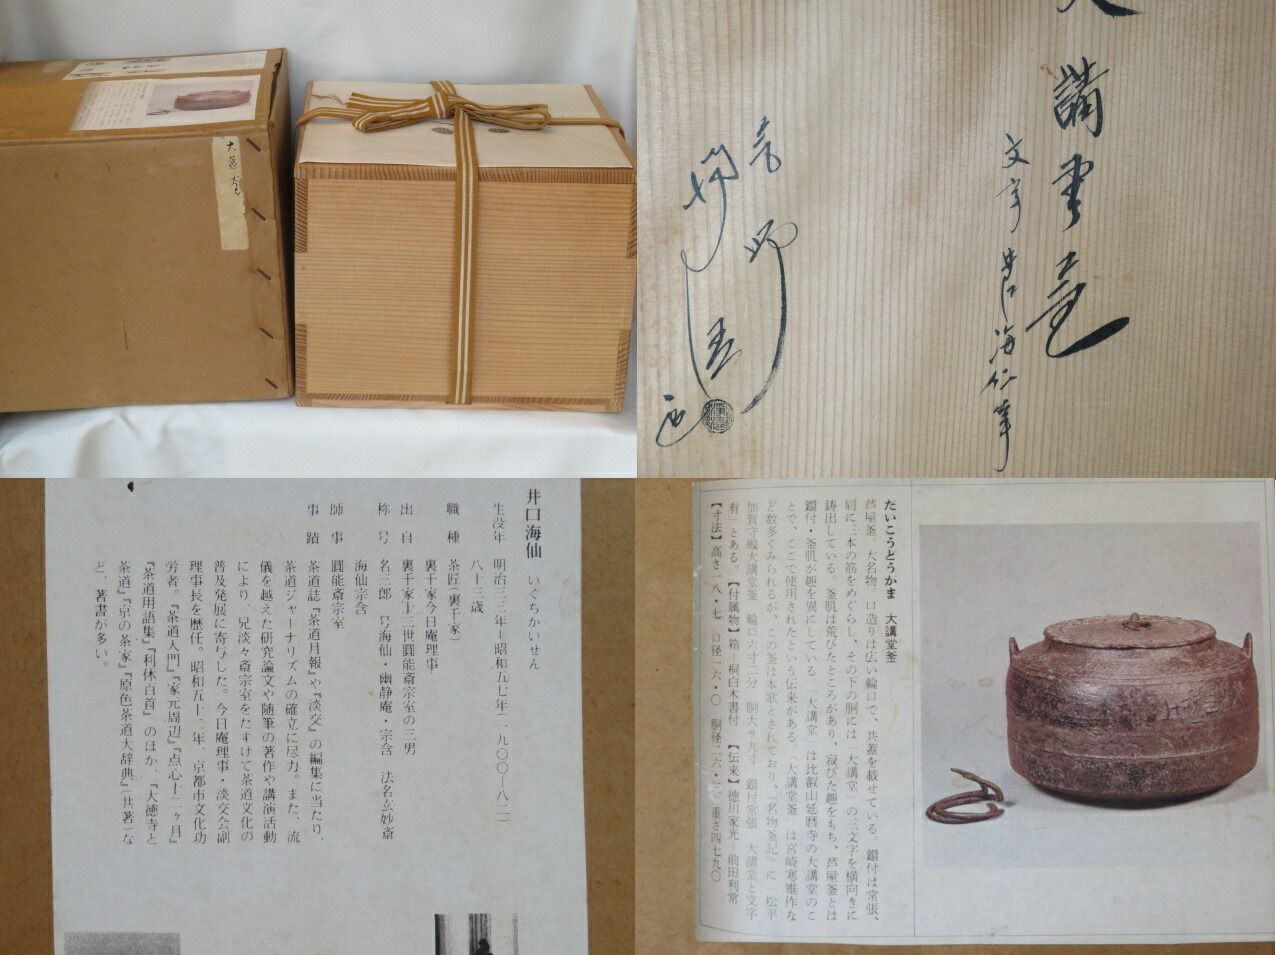 講堂
文字 井口海仙筆
井口海仙 いぐちかいせん
生没年 明治三三年―昭和五七年(一九〇〇―八二)
八十三歳
職種 茶匠(裏千家)
裏千家今日庵理事
出自 裏千家十三世圓能斎宗室の三男
称号 名三郎 号海仙・幽静庵・宗含 法名玄妙斎
海仙宗含
師事 圓能斎宗室
事蹟 茶道誌『茶道月報』や『淡交』の編集に当たり、
茶道ジャーナリズムの確立に尽力。また、流
儀を越えた研究論文や随筆の著作や講演活動
により、兄淡々斎宗室をたすけて茶道文化の
普及発展に寄与した。今日庵理事・淡交会副
理事長を歴任。昭和五十二年、京都市文化功
労者。『茶道入門』『家元周辺』『点心十二ヶ月』
『茶道用語集』『利休百首』のほか、『大徳寺と
茶道』『京の茶家』『原色茶道大辞典』(共著)な
ど、著書が多い。
たいこうとうかま 大講堂釜
芦屋釜 大名物。口造りは広い輪口で、共蓋を載せている。鐶付は常張、
肩に三本の筋をめぐらし、その下の胴には「大講堂」の三文字を横向きに
鋳出している。釜肌は荒びたところがあり、寂びた趣をもち、芦屋釜とは
鐶付・釜肌が趣を異にしている。「大講堂」は比叡山延暦寺の大講堂のこ
とで、ここで使用されたという伝来がある。「大講堂釜」は宮崎寒雉作な
ど数多くみられるが、この釜は本歌とされており、『名物釜記』に「松平
加賀守殿大講堂釜 輪口六寸二分 胴大サ九寸 鐶付常張 大講堂と文字
有」とある。【付属物】箱 桐白木書付 【伝来】徳川家光―前田利常
【寸法】高さ一八・七 口径一六・〇 胴径二六・二 重さ四七九〇